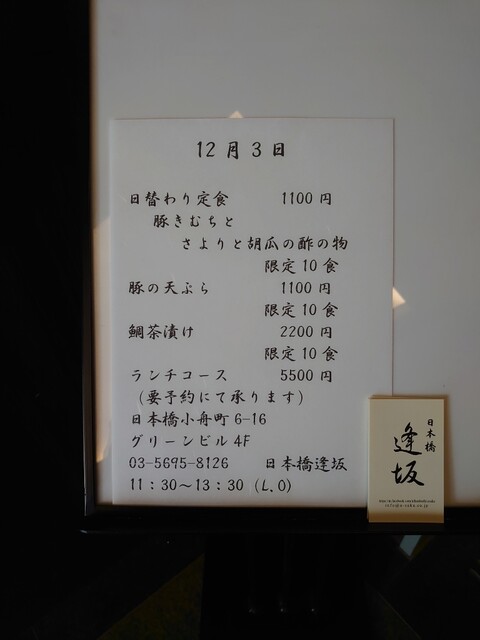 12月3日
日替わり定食 1100円
豚きむちと
さよりと胡瓜の酢の物
限定10食
豚の天ぷら 1100円
限定10食
鯛茶漬け 2200円
限定10食
ランチコース 5500円
(要予約にて承ります)
日本橋小舟町6-16
グリーンビル4F
03-5695-8126 日本橋逢坂
11:30～13:30 (L.O)
日本橋
逢坂